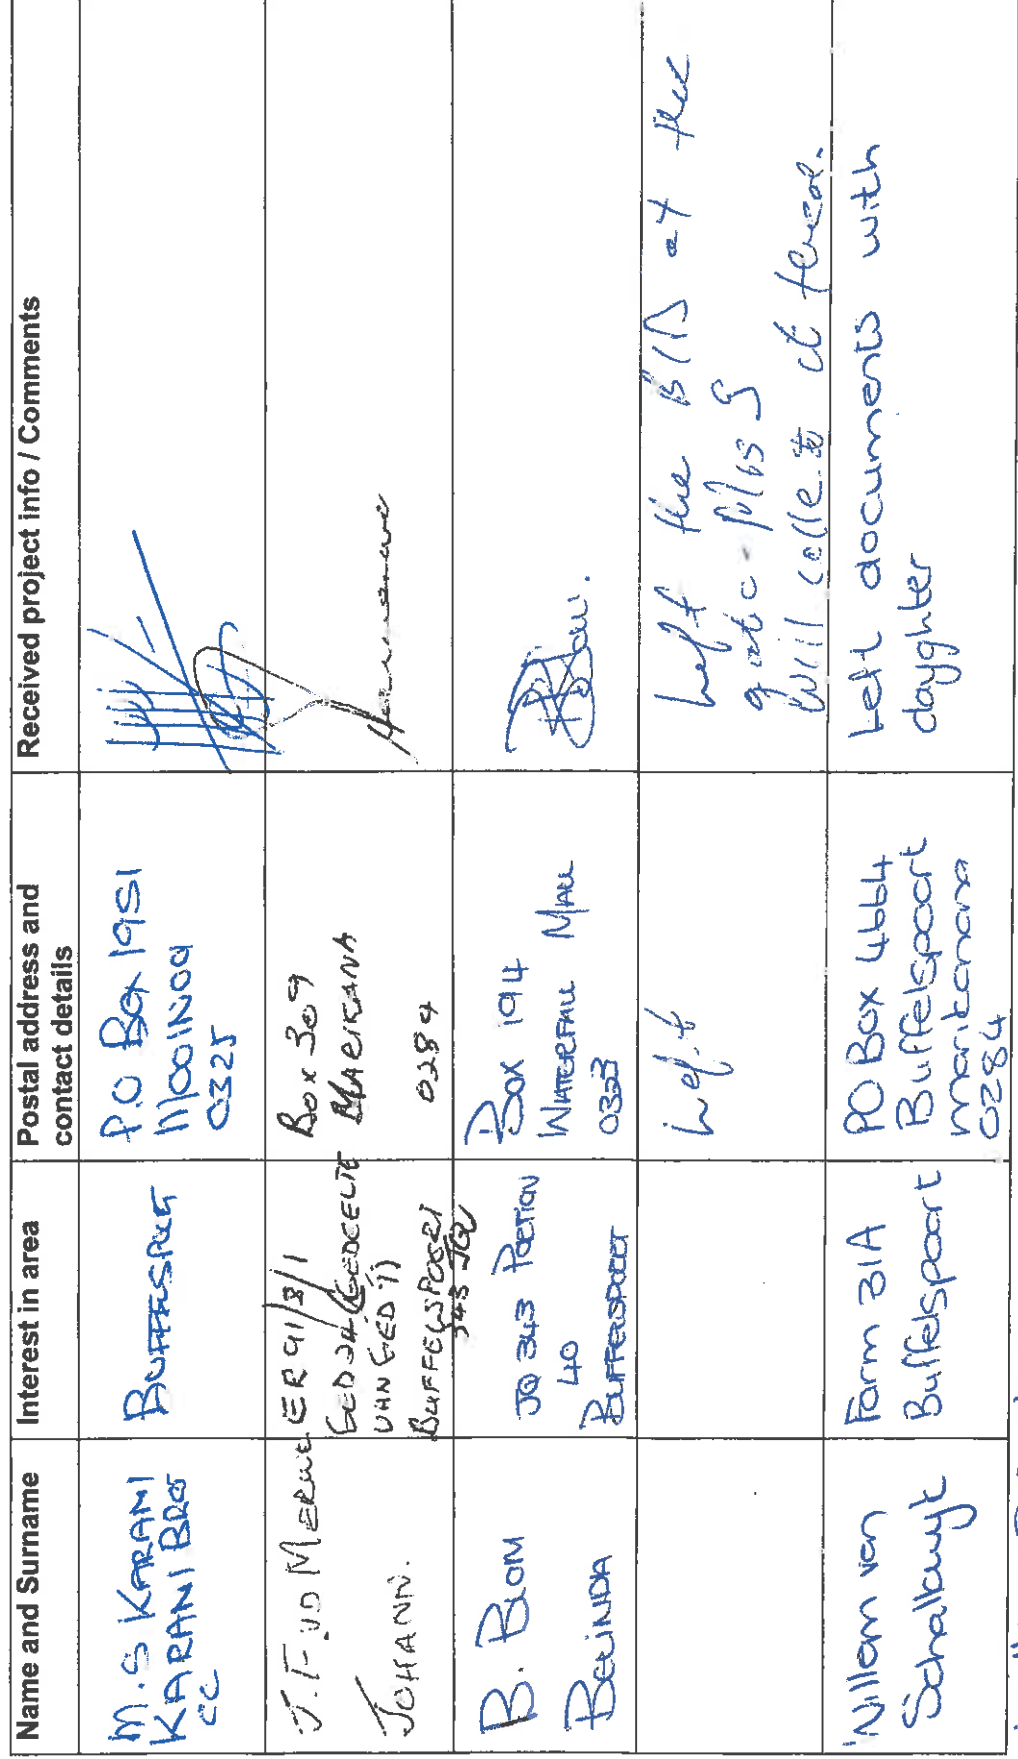 Name and Surname
Interest in area
Postal address and
contact details
Received project info / Comments
M.S KARANI
KARANI BROS
CC
BUFFESPORT
P.O Box 1951
MOOINOOI
0325
J.F VD MERWE
JOHANN.
ER 91/8/1
GED 24 (GEDEELTE
VAN GED 7)
BUFFELSPOORT
343 JQ
Box 309
MARIKANA
0284
B. BLOM
BELINDA
JQ 343 PORTION
40
BUFFELSPOORT
BOX 194
WATERFALL MALL
0323
Left
Left the BID at the
gate
Will collect it
Willem van
Schalkwyk
Farm 31A
Buffelspoort
PO BOX 4664
Buffelspoort
marikana
0284
Left documents with
dayghter